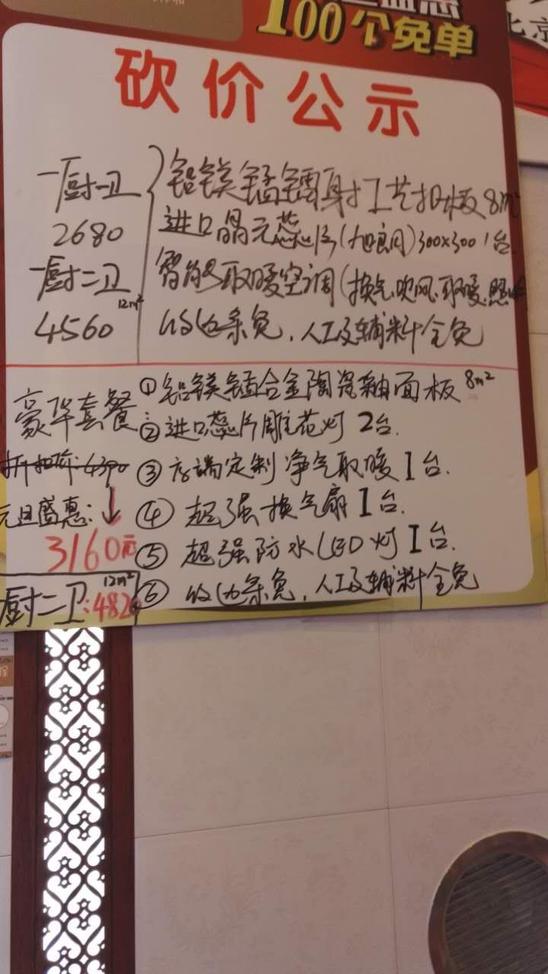 100个免单
砍价公示
一厨一卫
2680
一厨二卫
12m²
4560
铝镁锰镭射工艺扣板8m²
进口晶元芯片(旭朗)300x300 1台
智能取暖空调(换气.吹风.取暖.照
收边条免，人工及辅料全免
豪华套餐
折扣价:4390
元旦盛惠:↓
3160元
厨二卫:
12m²
482
①铝镁锰合金陶瓷釉面板8m²
②进口芯片雕花灯2台.
③高端定制净气取暖1台.
④超强换气扇1台
⑤超强防水LED灯1台.
⑥收边条免，人工及辅料全免